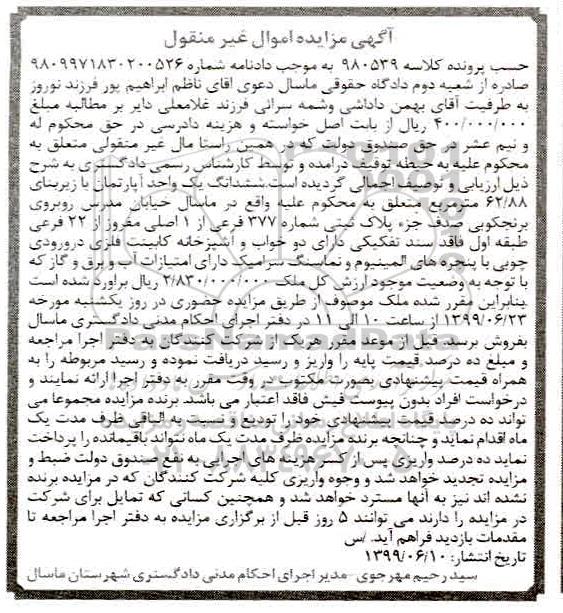 آگهی مزایده اموال غیر منقول
حسب پرونده کلاسه ۹۸۰۵۳۹ به موجب دادنامه شماره ۹۸۰۹۹۷۱۸۳۰۲۰۰۵۲۶
صادره از شعبه دوم دادگاه حقوقی ماسال دعوی اقای ناظم ابراهیم پور فرزند نوروز
به طرفیت آقای بهمن داداشی وشمه سرائی فرزند غلامعلی دایر بر مطالبه مبلغ
۴۰۰/۰۰۰/۰۰۰ ریال از بابت اصل خواسته و هزینه دادرسی در حق محکوم له
و نیم عشر در حق صندوق دولت که در همین راستا مال غیر منقولی متعلق به
محکوم علیه به حیطه توقیف درآمده و توسط کارشناس رسمی دادگستری به شرح
ذیل ارزیابی و توصیف اجمالی گردیده است.ششدانگ یک واحد آپارتمان با زیربنای
۶۲/۸۸ مترمربع متعلق به محکوم علیه واقع در ماسال خیابان مدرس روبروی
برنجکوبی صدف جزء پلاک ثبتی شماره ۳۷۷ فرعی از ۱ اصلی مفروز از ۲۲ فرعی
طبقه اول فاقد سند تفکیکی دارای دو خواب و آشپزخانه کابینت فلزی درورودی
چوبی با پنجره های المینیوم و نماسنگ سرامیک دارای امتیازات آب و برق و گاز که
با توجه به وضعیت موجود ارزش کل ملک ۲/۸۳۰/۰۰۰/۰۰۰ ریال براورد شده است
.بنابراین مقرر شده ملک موصوف از طریق مزایده حضوری در روز یکشنبه مورخه
۱۳۹۹/۰۶/۲۳ از ساعت ۱۰ الی ۱۱ در دفتر اجرای احکام مدنی دادگستری ماسال
بفروش برسد. قبل از موعد مقرر هریک از شرکت کنندگان به دفتر اجرا مراجعه
و مبلغ ده درصد قیمت پایه را واریز و رسید دریافت نموده و رسید مربوطه را به
همراه قیمت پیشنهادی بصورت مکتوب در وقت مقرر به دفتر اجرا ارائه نمایند و
درخواست افراد بدون پیوست فیش فاقد اعتبار می باشد. برنده مزایده مجموعا می
تواند ده درصد قیمت پیشنهادی خود را تودیع و نسبت به الباقی ظرف مدت یک
ماه اقدام نماید و چنانچه برنده مزایده ظرف مدت یک ماه نتواند باقیمانده را پرداخت
نماید ده درصد واریزی پس از کسر هزینه های اجرایی به نفع صندوق دولت ضبط و
مزایده تجدید خواهد شد و وجوه واریزی کلیه شرکت کنندگان که در مزایده برنده
نشده اند نیز به آنها مسترد خواهد شد و همچنین کسانی که تمایل برای شرکت
در مزایده را دارند می توانند ۵ روز قبل از برگزاری مزایده به دفتر اجرا مراجعه تا
مقدمات بازدید فراهم آید. /س
تاریخ انتشار: ۱۳۹۹/۰۶/۱۰
سیدرحیم مهرجوی -مدیر اجرای احکام مدنی دادگستری شهرستان ماسال